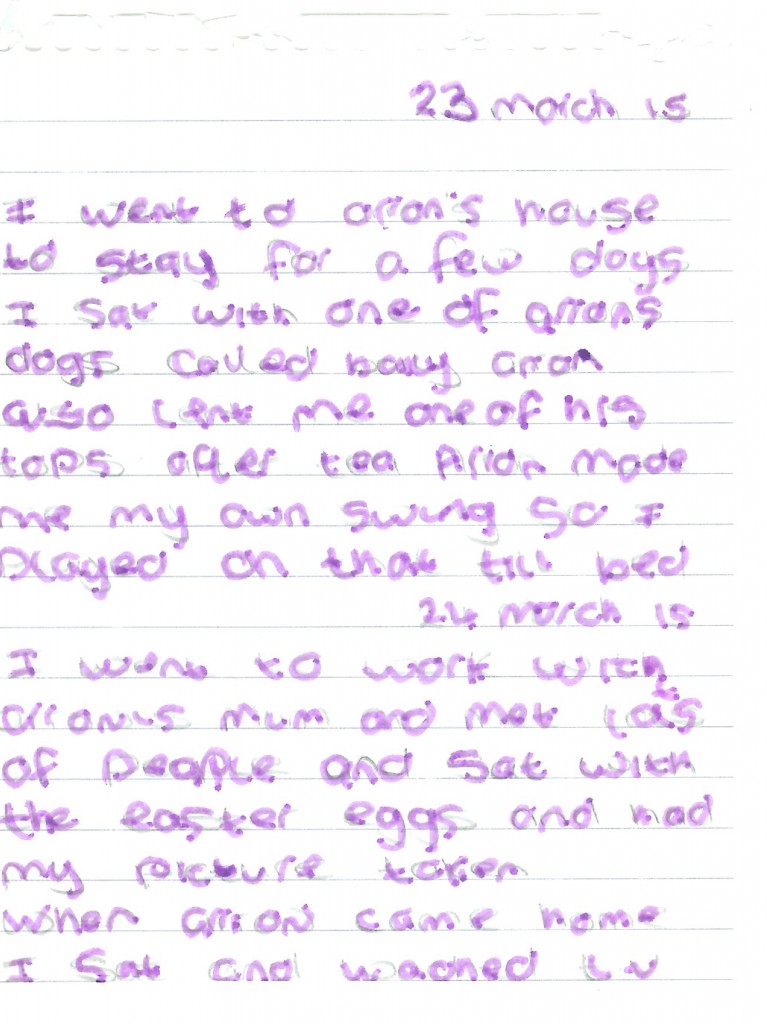 23 march 15
I went to arron's house
to stay for a few days
I sat with one of arrons
dogs called
also lent me one of his
tops after tea Arron made
me my own swing so I
played on that till bed
24 march 15
I went to work with
mum and met
of people and sat with
the easter eggs and had
my picture taken
when arron came home
I sat and wached tv